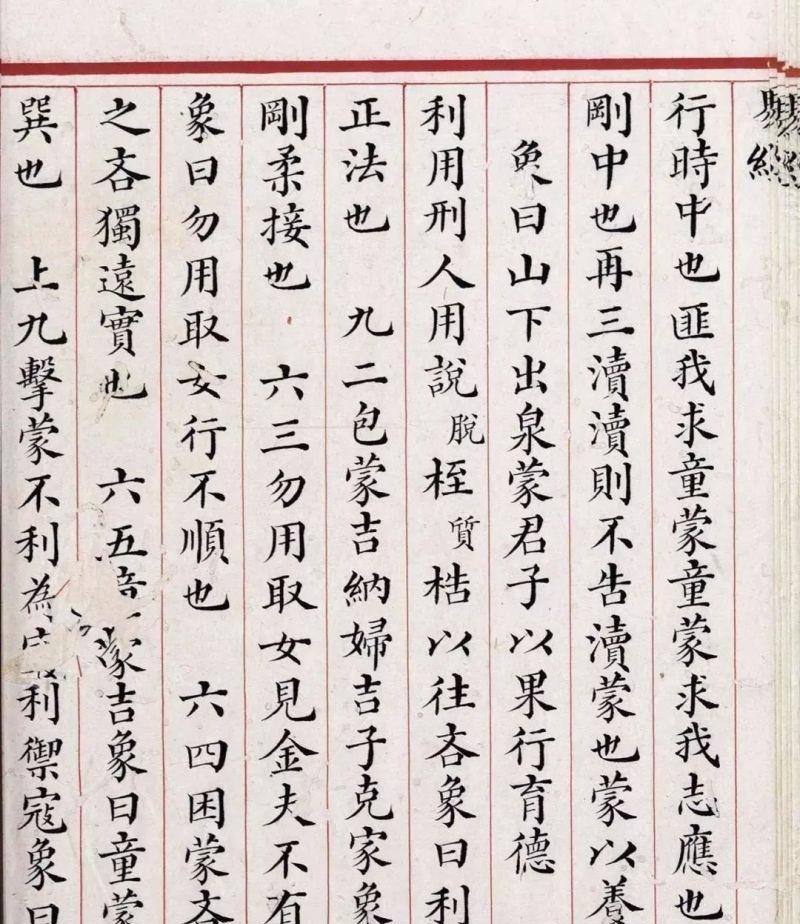 易經
行時中也匪我求童蒙童蒙求我志應也
剛中也再三瀆瀆則不告瀆蒙也蒙以養
象曰山下出泉蒙君子以果行育德
利用刑人用說脫桎質梏以往吝象曰利
正法也 九二包蒙吉納婦吉子克家象
剛柔接也 六三勿用取女見金夫不有
象曰勿用取女行不順也 六四困蒙吝
之吝獨遠實也 六五童蒙吉象曰童蒙
巽也 上九擊蒙不利為利禦寇象曰